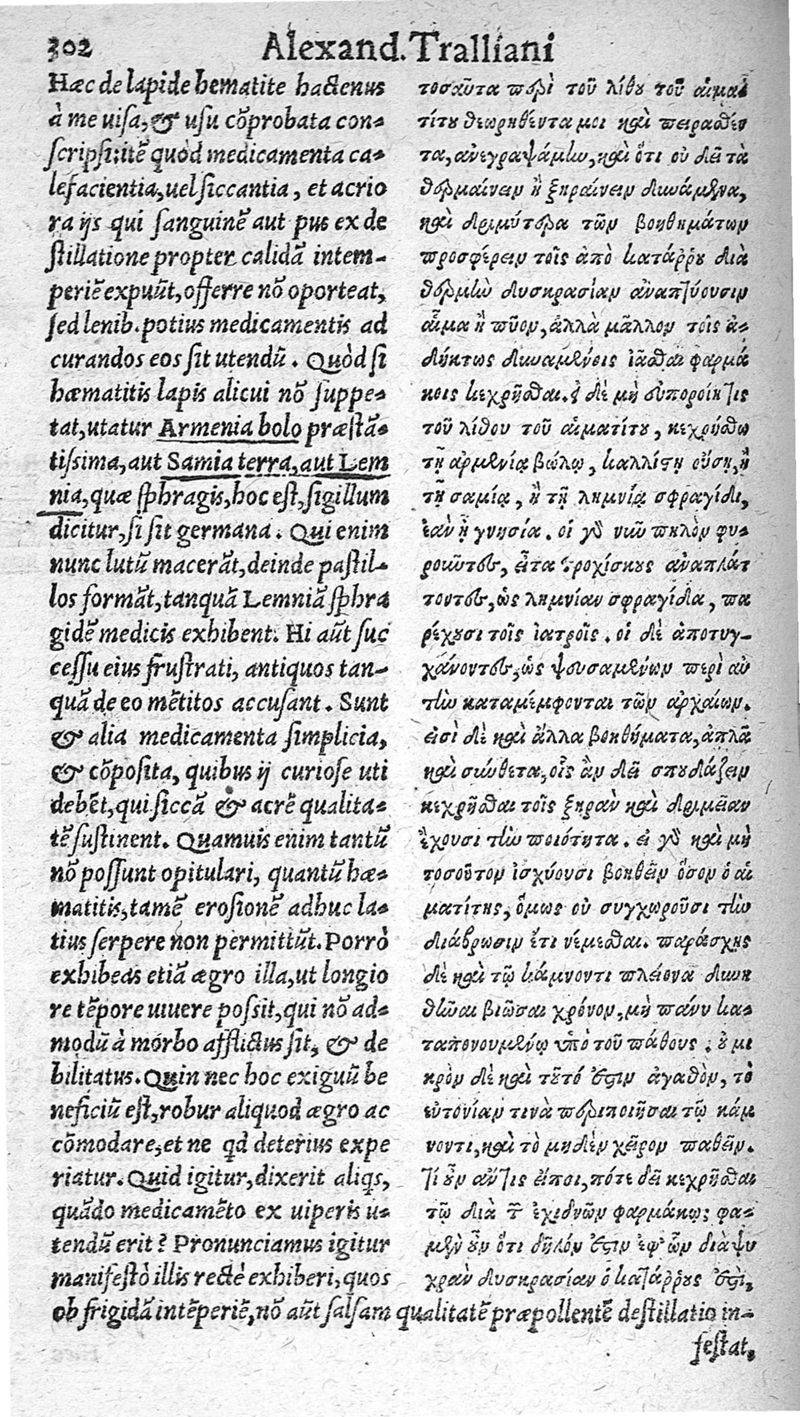 302
Alexand. Tralliani
Hæc de lapide hematite hactenus
à me uisa, & usu cõprobata con-
scripsi: itẽ quòd medicamenta ca-
lefacientia, uel siccantia, et acrio
ra ijs qui sanguinẽ aut pus ex de
stillatione propter calidã intem-
periẽ expuũt, offerre nõ oporteat,
sed lenib. potius medicamentis ad
curandos eos sit utendũ. Quòd si
hæmatitis lapis alicui nõ suppe-
tat, utatur Armenia bolo præstã-
tissima, aut Samia terra, aut Lem
nia, quæ sphragis, hoc est, sigillum
dicitur, si sit germana. Qui enim
nunc lutũ macerãt, deinde pastil-
los formãt, tanquã Lemniã sphra
gidẽ medicis exhibent. Hi aũt suc
cessu eius frustrati, antiquos tan-
quã de eo mẽtitos accusant. Sunt
& alia medicamenta simplicia,
& cõposita, quibus ij curiose uti
debẽt, qui siccã & acrẽ qualita-
tẽ sustinent. Quamuis enim tantũ
nõ possunt opitulari, quantũ hæ-
matitis, tamẽ erosionẽ adhuc la-
tius serpere non permittũt. Porrò
exhibeas etiã ægro illa, ut longio
re tẽpore uiuere possit, qui nõ ad-
modũ à morbo afflictus sit, & de
bilitatus. Quin nec hoc exiguũ be
neficiũ est, robur aliquod ægro ac
cõmodare, et ne qd deterius expe
riatur. Quid igitur, dixerit aliqs,
quãdo medicamẽto ex uiperis u-
tendũ erit? Pronunciamus igitur
manifestò illis rectè exhiberi, quos
τοσαῦτα περὶ τοῦ λίθου τοῦ αἱματ
τίτου θεωρηθέντα μοι καὶ πειραθέν
τα, ἀνεγραψάμην, καὶ ὅτι οὐ δεῖ τὰ
θερμαίνειν ἢ ξηραίνειν δυνάμενα,
καὶ δριμύτερα τῶν βοηθημάτων
προσφέρειν τοῖς ἀπὸ κατάρρου διὰ
θερμὴν δυσκρασίαν ἀναπτύουσιν
αἷμα ἢ πῦον, ἀλλὰ μᾶλλον τοῖς ἀ-
δήκτως δυναμένοις ἰᾶσθαι φαρμά
κοις κεχρῆσθαι. εἰ δὲ μὴ εὐποροίη τις
τοῦ λίθου τοῦ αἱματίτου, κεχρήσθω
τῇ ἀρμενίᾳ βώλῳ, καλλίστῃ οὔσῃ, ἢ
τῇ σαμίᾳ, ἢ τῇ λημνίᾳ σφραγίδι,
ἐὰν ᾖ γνησία. οἱ γὰρ νῦν πηλὸν φυ-
ρῶντες, εἶτα τροχίσκους ἀναπλάτ
τοντες, ὡς λημνίαν σφραγίδα, πα
ρέχουσι τοῖς ἰατροῖς. οἱ δὲ ἀποτυγ-
χάνοντες, ὡς ψευσαμένων περὶ αὐ
τὴν καταμέμφονται τῶν ἀρχαίων.
εἰσὶ δὲ καὶ ἄλλα βοηθήματα, ἁπλᾶ
καὶ σύνθετα, οἷς ἂν δεῖ σπουδάζειν
κεχρῆσθαι τοῖς ξηρὰν καὶ δριμεῖαν
ἔχουσι τὴν ποιότητα. εἰ γὰρ καὶ μὴ
τοσοῦτον ἰσχύουσι βοηθεῖν ὅσον ὁ αἱ
ματίτης, ὅμως οὐ συγχωροῦσι τὴν
διάβρωσιν ἔτι νέμεσθαι. παράσχῃς
δὲ καὶ τῷ κάμνοντι πλείονα δυνη
θῆναι βιῶσαι χρόνον, μὴ πάνυ κα-
ταπονουμένῳ ὑπὸ τοῦ πάθους. οὐ μι
κρὸν δὲ καὶ τοῦτό ἐστιν ἀγαθὸν, τὸ
εὐτονίαν τινὰ περιποιῆσαι τῷ κάμ
νοντι, καὶ τὸ μηδὲν χεῖρον παθεῖν.
τί οὖν ἄν τις εἴποι, πότε δεῖ κεχρῆσθαι
τῷ διὰ τῶν ἐχιδνῶν φαρμάκῳ; φα-
μὲν οὖν ὅτι δῆλόν ἐστιν ἐφ' ὧν διὰ ψυ
χρὰν δυσκρασίαν ὁ κατάρρους ἐστὶ,
ob frigidã intẽperiẽ, nõ aũt salsam qualitatẽ præpollentẽ destillatio in-
festat,